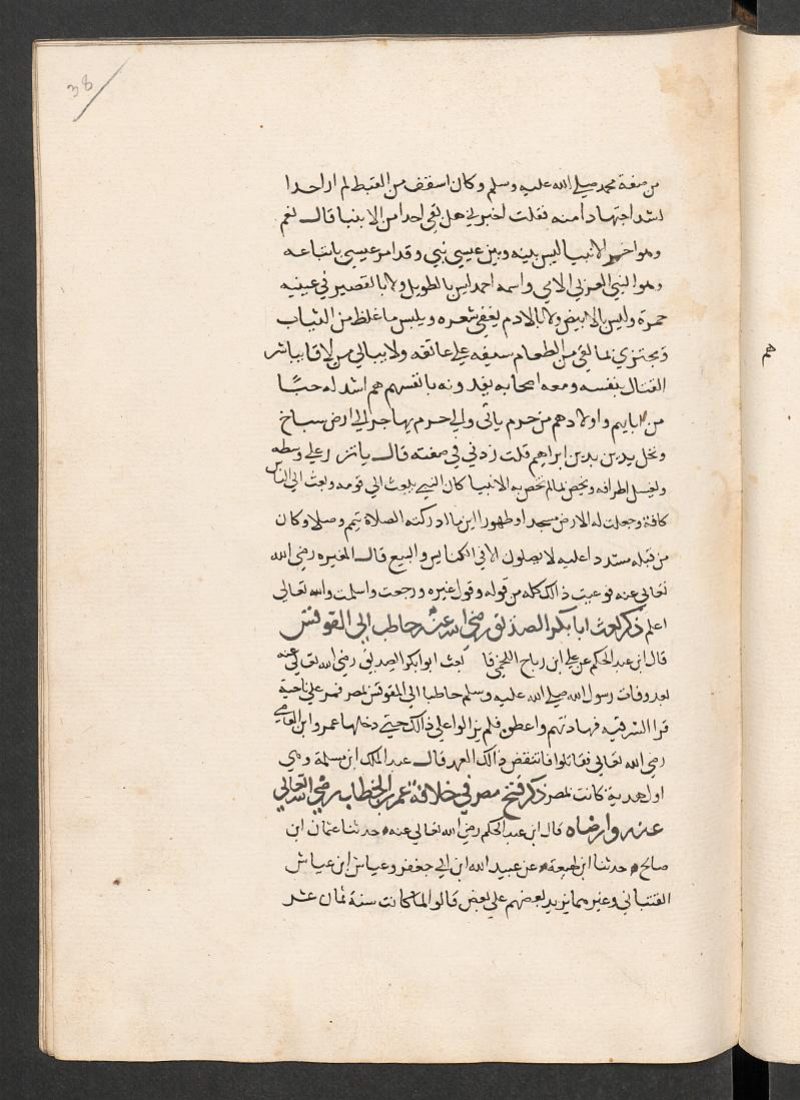 38
من صفة محمد صلى الله عليه وسلم وكان اسقف من القبط لم ار احدا
اشد اجتهادا منه فقلت اخبرني هل بقي احد من الانبيا قال نعم
وهو اخر الانبيا ليس بينه وبين عيسى نبي وقد امر عيسى باتباعه
وهو النبي العربي الامي واسمه احمد ليس بالطويل ولا بالقصير في عينيه
حمرة وليس بالابيض ولا بالادم يعفي شعره ويلبس ما غلظ من الثياب
ويجتزي بما لقي من الطعام سيفه على عاتقه ولا يبالي من لاقا يباشر
القتال بنفسه ومعه اصحابه يفدونه بانفسهم هم اشد له حبًا
من ابايهم واولادهم من حرم ياتي والى حرم يهاجر الى ارض سباخ
ونخل يدين بدين ابراهيم قلت زدني في صفته قال ياتزر على وسطه
ويغسل اطرافه ويخص بما لم يخص به الانبيا كان النبي يبعث الى قومه وبعث الى الناس
كافة وجعلت له الارض مسجدا وطهورا اين ما ادركته الصلاة تيمم وصلا وكان
من قبله مشددا عليه لا يصلون الا في الكنايس والبيع قال المغيره رضي الله
تعالى عنه فوعيت ذالك كله من قوله وقول غيره ورجعت واسلمت والله تعالى
اعلم ذكر بعث ابا بكر الصديق رضي الله عنه حاطب الى المقوقس
قال ابن عبد الحكم عن علي ابن رباح اللخمي قا بعث ابو ابكر الصديق رضي الله تعالى عنه
بعد وفات رسول الله صلى الله عليه وسلم حاطبا الى المقوقس بمصر فمر على ناحية
قرا الشرقيه فهادنهم واعطوه فلم يزالوا على ذالك حتى دخلها عمرو ابن العاصي
رضي الله تعالى فقاتلوا فانتقض ذالك العهد قال عبد الملك ابن مسلمة وهي
اول هدية كانت بمصر ذكر فتح مصر في خلافة عمر بن الخطاب رضي الله تعالى
عنه وارضاه قال ابن عبد الحكم رضي الله تعالى عنه حدثنا عثمان ابن
صالح حدثنا ابن لهيعة عن عبيد الله ابن ابي جعفر وعياش ابن عياش
القتباني وغيره مما يزيد بعضهم على بعض قالوا لما كانت سنة ثمان عشر
هم